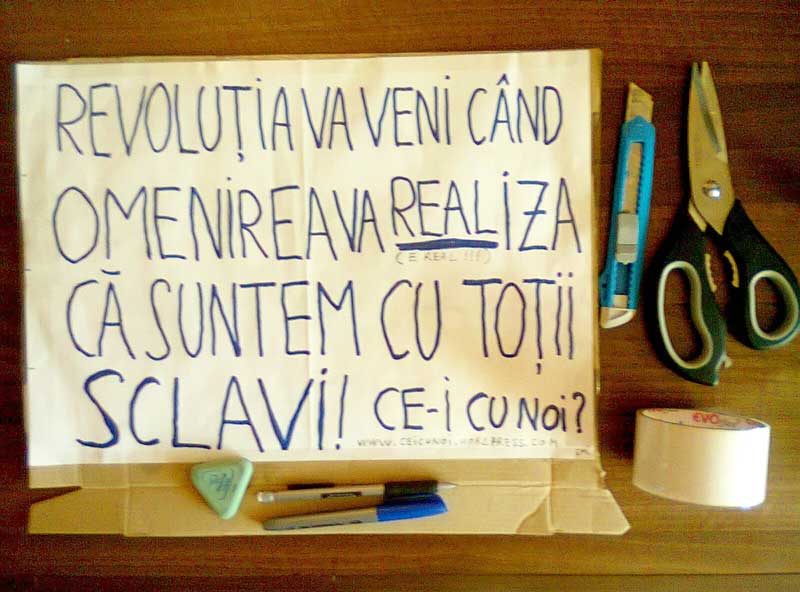 REVOLUȚIA VA VENI CÂND
OMENIREA VA REALIZA
(E REAL !!!)
CĂ SUNTEM CU TOȚII
SCLAVI! CE-I CU NOI?
WWW.CEICUNOI.WORDPRESS.COM
EVO